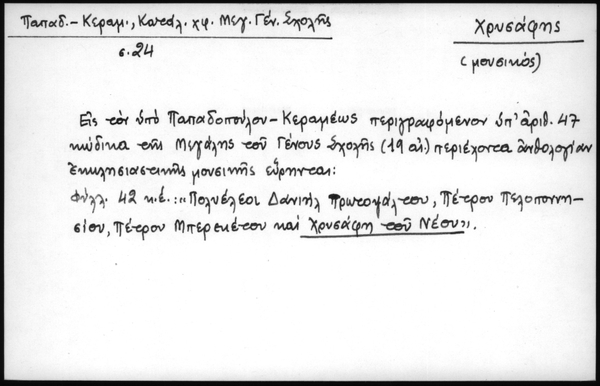 Παπαδ.-Κεραμ., Κατάλ. χφ. Μεγ. Γέν. Σχολῆς
σ.24
Χρυσάφης
(μουσικός)
Εἰς τὸν ὑπὸ Παπαδοπούλου-Κεραμέως περιγραφόμενον ὑπ' ἀριθ. 47
κώδικα τῆς Μεγάλης τοῦ Γένους Σχολῆς (19 αἰ.) περιέχοντα ἀνθολογίαν
ἐκκλησιαστικῆς μουσικῆς εὕρηνται:
Φύλλ. 42 κ.ἑ.: "Πολυέλεοι Δανιὴλ Πρωτοψάλτου, Πέτρου Πελοποννη-
σίου, Πέτρου Μπερεκέτου καὶ Χρυσάφη τοῦ Νέου".